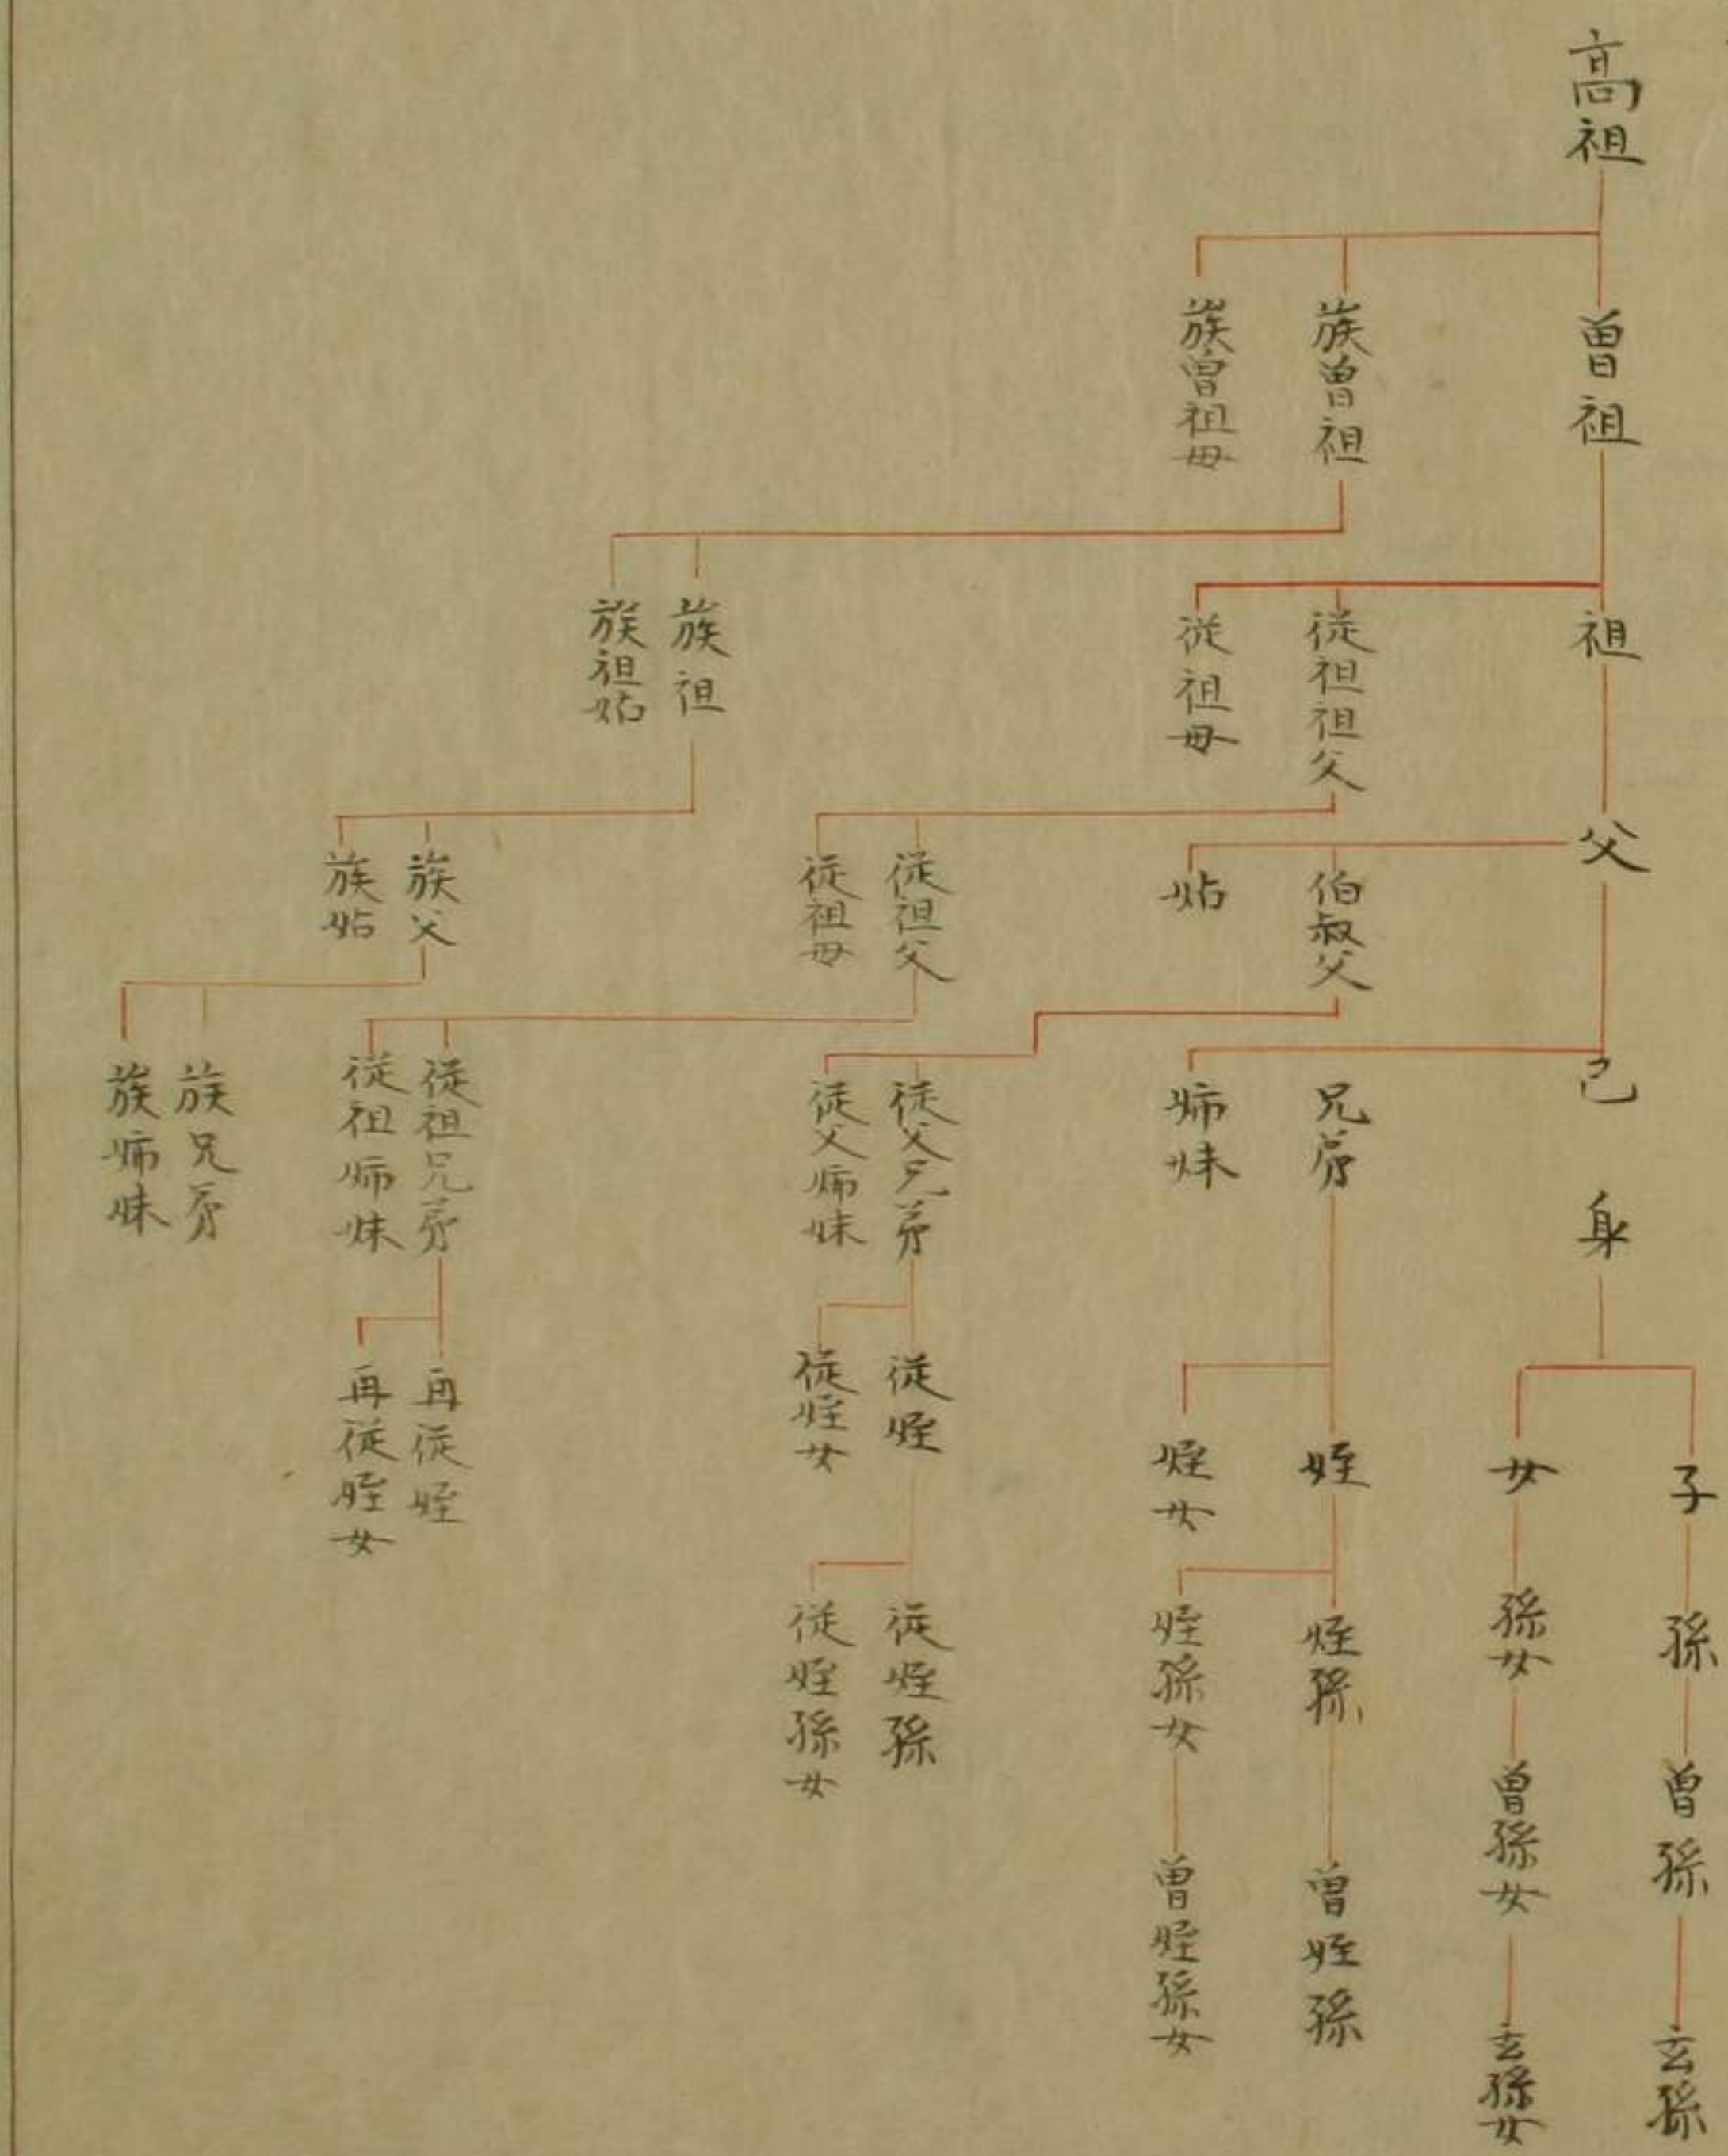 高祖
曽祖
族曽祖
族曽祖母
祖
従祖祖父
従祖母
族祖
族祖姑
父
伯叔父
姑
従祖父
従祖母
族父
族姑
己身
兄弟
姉妹
従父兄弟
従父姉妹
従祖兄弟
従祖姉妹
族兄弟
族姉妹
子
女
姪
姪女
従姪
従姪女
再従姪
再従姪女
孫
孫女
姪孫
姪孫女
従姪孫
従姪孫女
曽孫
曽孫女
曽姪孫
曽姪孫女
玄孫
玄孫女